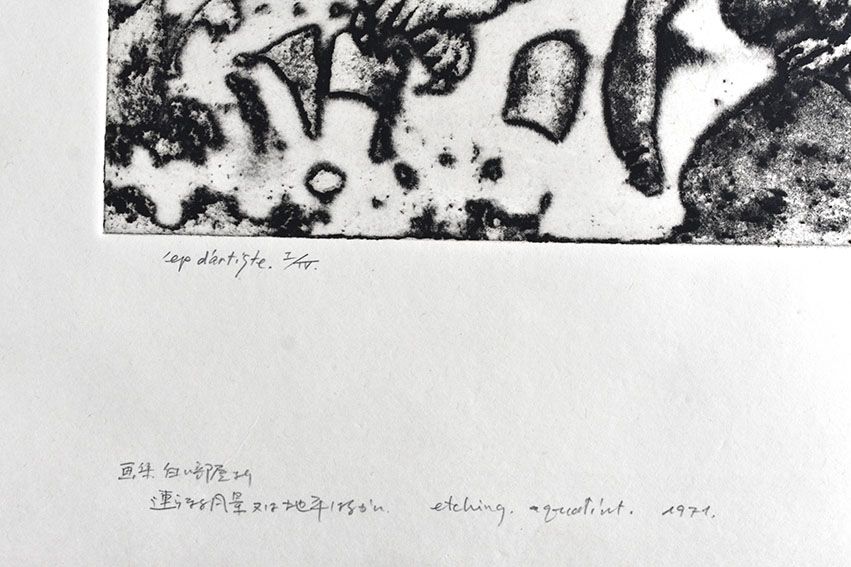 'ep d'artiste. I/IV.
画集 白い部屋より
連 風景又は地平はるかに etching. aquatint. 1971.